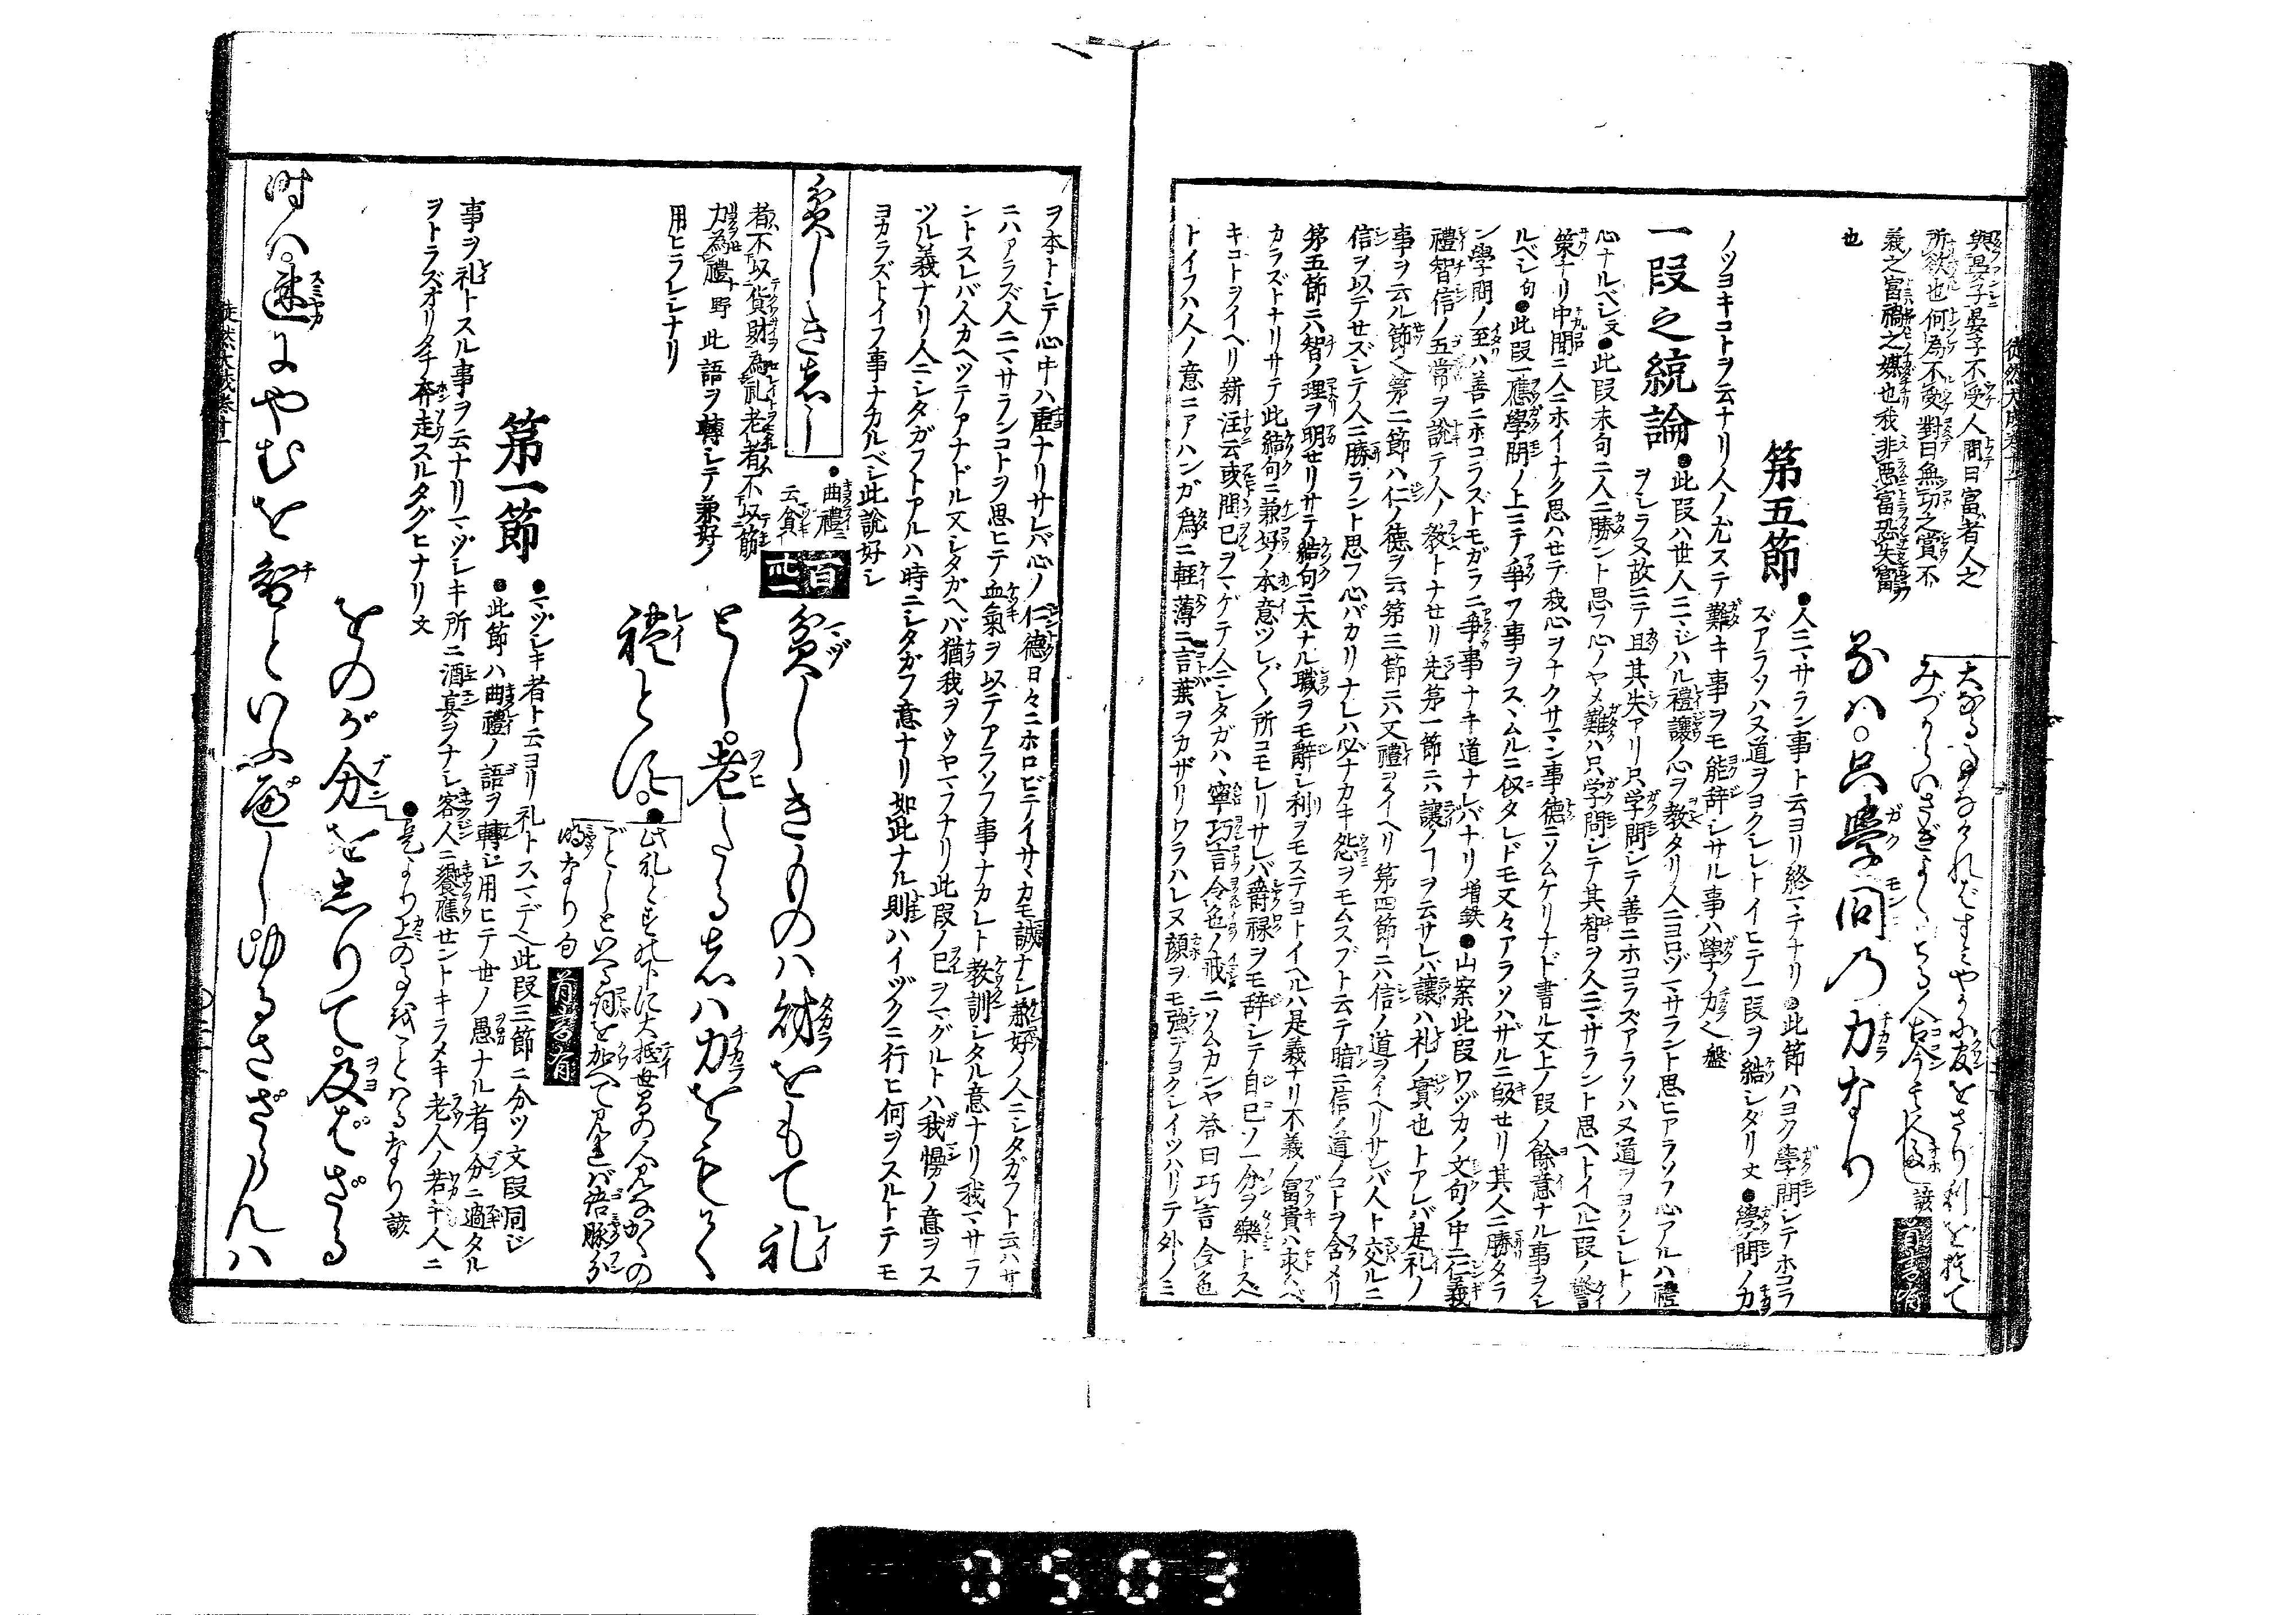 徒然大成巻十一
與晏子晏子不受人問曰富者人之
所欲也何為不受對曰無功之賞不
義之富禍之媒也我非悪富恐失富
也
大なる事なければすみやかに度をさり利を捨て
みづからいさぎよくせる人古今其人多し諺
るハ。只學問乃力なり
第五節
●人ニマサラン事ト云ヨリ終マテナリ●此節ハヨク學問シテホコラ
ズアラソハヌ道ヲヨクシレトイヒテ一段ヲ結シタリ文●學問ノ力
ノツヨキコトヲ云ナリ人ノ尤ステ難キ事ヲモ能辞シサル事ハ學ノ力也盤
一段之統論
●此段ハ世人ニマジハル禮讓ノ心ヲ教タリ人ニヨロヅマサラント思ヒアラソフ心アルハ禮
ヲシラヌ故ニテ且其失アリ只学問シテ善ニホコラズアラソハヌ道ヲヨクシレトノ
心ナルベシ文●此段末句ニ人ニ勝ント思フ心ノヤメ難クハ只学問シテ其智ヲ人ニマサラント思ヘトイヘル一段ノ警
策ナリ中間ニ人ニホイナク思ハセテ我心ヲナクサマン事徳ニソムケリナド書ル文上ノ段ノ餘意ナル事ヲシ
ルベシ句●此段一應學問ノ上ニテ争フ事ヲスヽムルニ似タレドモ又々アラソハザルニ皈セリ其人ニ勝タラ
ン學問ノ至ハ善ニホコラズトモガラニ争事ナキ道ナレバナリ増鉄●山案此段ワヅカノ文句ノ中ニ仁義
禮智信ノ五常ヲ說テ人ノ教トナセリ先第一節ニハ讓ノ一ヲ云サレバ讓ハ礼ノ實也トアレバ是礼ノ
事ヲ云ル節也第二節ハ仁ノ徳ヲ云第三節ニハ又禮ヲイヘリ第四節ニハ信ノ道ヲイヘリサレバ人ト交ルニ
信ヲ以テセズシテ人ニ勝ラント思フ心バカリナレハ必ナカキ怨ヲモムスブト云テ暗ニ信ノ道ノコトヲ含メリ
第五節ニハ智ノ理ヲ明セリサテ結句ニ大ナル職ヲモ辭シ利ヲモステヨトイヘルハ是義ナリ不義ノ富貴ハ求ヘベ
カラズトナリサテ此結句ニ兼好ノ本意ツレ〱ノ所コモレリサレバ爵禄ヲモ辞シテ自己ソ一分ヲ樂トスヘ
キコトヲイヘリ新注云或問己ヲマゲテ人ニシタガハヽ寧巧言令色ノ戒ニソムカンヤ答曰巧言令色
トイフハ人ノ意ニアハンガ為ニ軽薄ニ言葉ヲカザリワラハレヌ顔ヲモ強テヨクシイツハリテ外ノミ
ヲ本トシテ心中ハ虚ナリサレバ心ノ仁徳日々ニホロビテイサヽカモ誠ナシ兼好ノ人ニシタガフト云ハサ
ニハアラズ人ニマサランコトヲ思ヒテ血氣ヲ以テアラソフ事ナカレト教訓シタル意ナリ我マサラ
ントスレバ人カヘツテアナドル又シタカヘバ猶我ヲウヤマフナリ此段ノ己ヲマグルトハ我慢ノ意ヲス
ツル義ナリ人ニシタガフトアルハ時ニシタガフ意ナリ如此ナル則ハイヅクニ行ヒ何ヲスルトテモ
ヨカラズトイフ事ナカルベシ此説好シ
貧しき者ハ
●曲禮ニ
云貧
者不以貨財為礼老者不以筋
力為禮 野 此語ヲ轉シテ兼好ノ
用ヒラレシナリ
百
四
貧しきものハ財をもて礼
とし。老たる者ハ力をもて
禮とす。
●此礼とすの下に大抵世間の人みなかくの
ごとしといへる詞を加へて見れバ語脉分
明なり句
第一節
●マヅシキ者ト云ヨリ礼トスマデ也此段三節ニ分ツ文段同ジ
●此節ハ曲禮ノ語ヲ轉ジ用ヒテ世ノ愚ナル者ノ分ニ過タル
事ヲ礼トスル事ヲ云ナリマヅシキ所ニ酒宴ヲナシ客人ニ饗應セントキラメキ老人ノ若キ人ニ
ヲトラズオリタチ奔走スルタグヒナリ文
をのが分を志りて。及ばざる
●是より上の事をことハるなり諺
時ハ。速にやむを智といふべし。ゆるさざらんハ
徒然大成巻十一